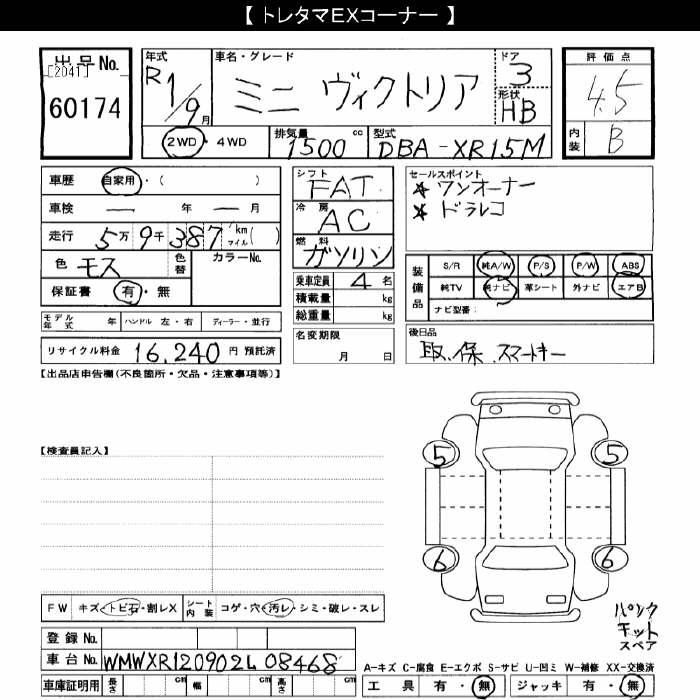 【 トレタマEXコーナー 】
出品 No.
[2041]
60174
年式
R1/9月
車名・グレード
ミニ ヴィクトリア
ドア
3
形状
HB
評価点
4.5
内装
B
2WD・4WD
排気量
1500 cc
型式
DBA-XR15M
車歴 自家用・( )
車検 ー 年 ー 月
走行 5万9千387 km マイル( )
色 モス 色替 カラーNo.
保証書 有・無
シフト
FAT
冷房
AC
燃料
ガソリン
乗車定員 4 名
積載量 kg
総重量 kg
セールスポイント
★ ワンオーナー
★ ドラレコ
装備品
S/R 純A/W P/S P/W ABS
純TV 純ナビ 革シート 外ナビ エアB
ナビ型番:
モデル年式 年 ハンドル 左・右 ディーラー・並行
リサイクル料金 16,240 円 預託済
名変期限
月 日
後日品
取.保.スマートキー
【出品店申告欄(不良箇所・欠品・注意事項等)】
【検査員記入】
5 5
6 6
FW キズ・トビ石・割レX シート内装 コゲ・穴・汚レ・シミ・破レ・スレ
パンク
キット
スペア
登録 No.
車台 No. WMWXR120902L08468
A-キズ C-腐食 E-エクボ S-サビ U-凹ミ W-補修 XX-交換済
車庫証明用 長さ cm 幅 cm 高さ cm
工具 有・無 ジャッキ 有・無